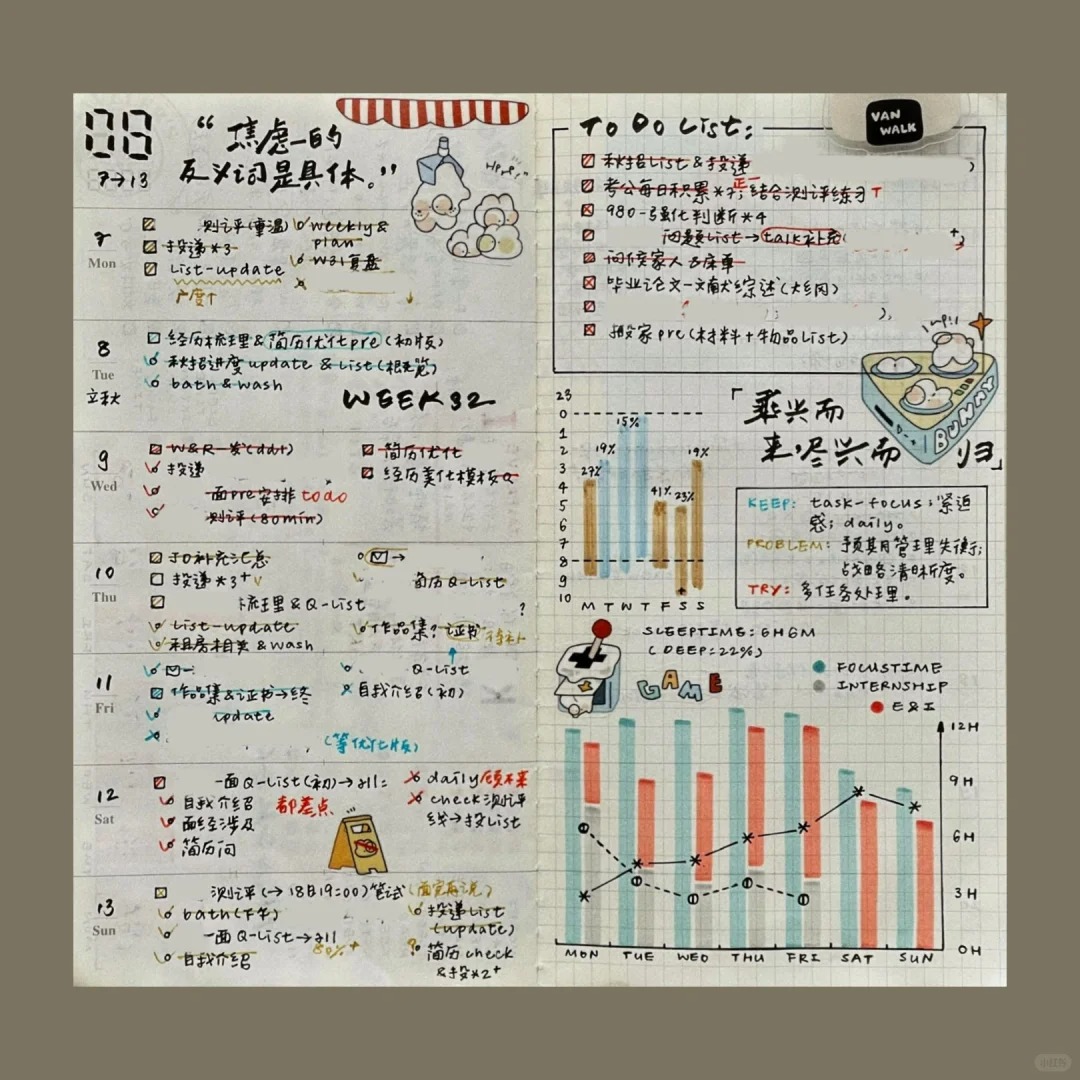 08
7→13
“焦虑的
反义词是具体。”
7
Mon
测评(重温)
投递*3
List-update
weekly &
plan
W31复盘
8
Tue
立秋
经历梳理&简历优化pre(初版)
秋招进度update & List(概览)
bath & wash
WEEK32
9
Wed
W&R-发(ddl)
投递
一面pre安排 todo
测评(80min)
简历优化
经历美化模板Q
10
Thu
JD补充汇总
投递*3+
梳理&Q-List
List-update
租房相关&wash
→
简历Q-List
?
作品集?证书
11
Fri
作品集&证书→终
update
Q-List
自我介绍(初)
(等优化版)
12
Sat
一面Q-List(初)→
自我介绍
都差点
面经涉及
简历问
daily 顾不来
check测评
线→投List
13
Sun
测评(→18日19:00)笔试(面完再说)
bath(下午)
一面Q-List→
80%+
自我介绍
投递List
(update)
? 简历check
&投*2+
TO DO List:
VAN
WALK
秋招List & 投递
考公每日积累*7;结合测评练习
980-强化判断*4
问题List→talk补充(
问候家人&床单
毕业论文-文献综述(大纲)
搬家pre(材料+物品List)
BUNNY
「乘兴而
来,尽兴而归」
23
0
1
2
3
4
5
6
7
8
9
10
27%
19%
15%
41%
23%
19%
M T W T F S S
KEEP: task-focus;紧迫
感;daily。
PROBLEM: 预期管理失衡;
战略清晰度。
TRY: 多任务处理。
SLEEPTIME: 6H6M
(DEEP=22%)
GAME
FOCUSTIME
INTERNSHIP
E&I
12H
9H
6H
3H
0H
MON TUE WED THU FRI SAT SUN
小红书